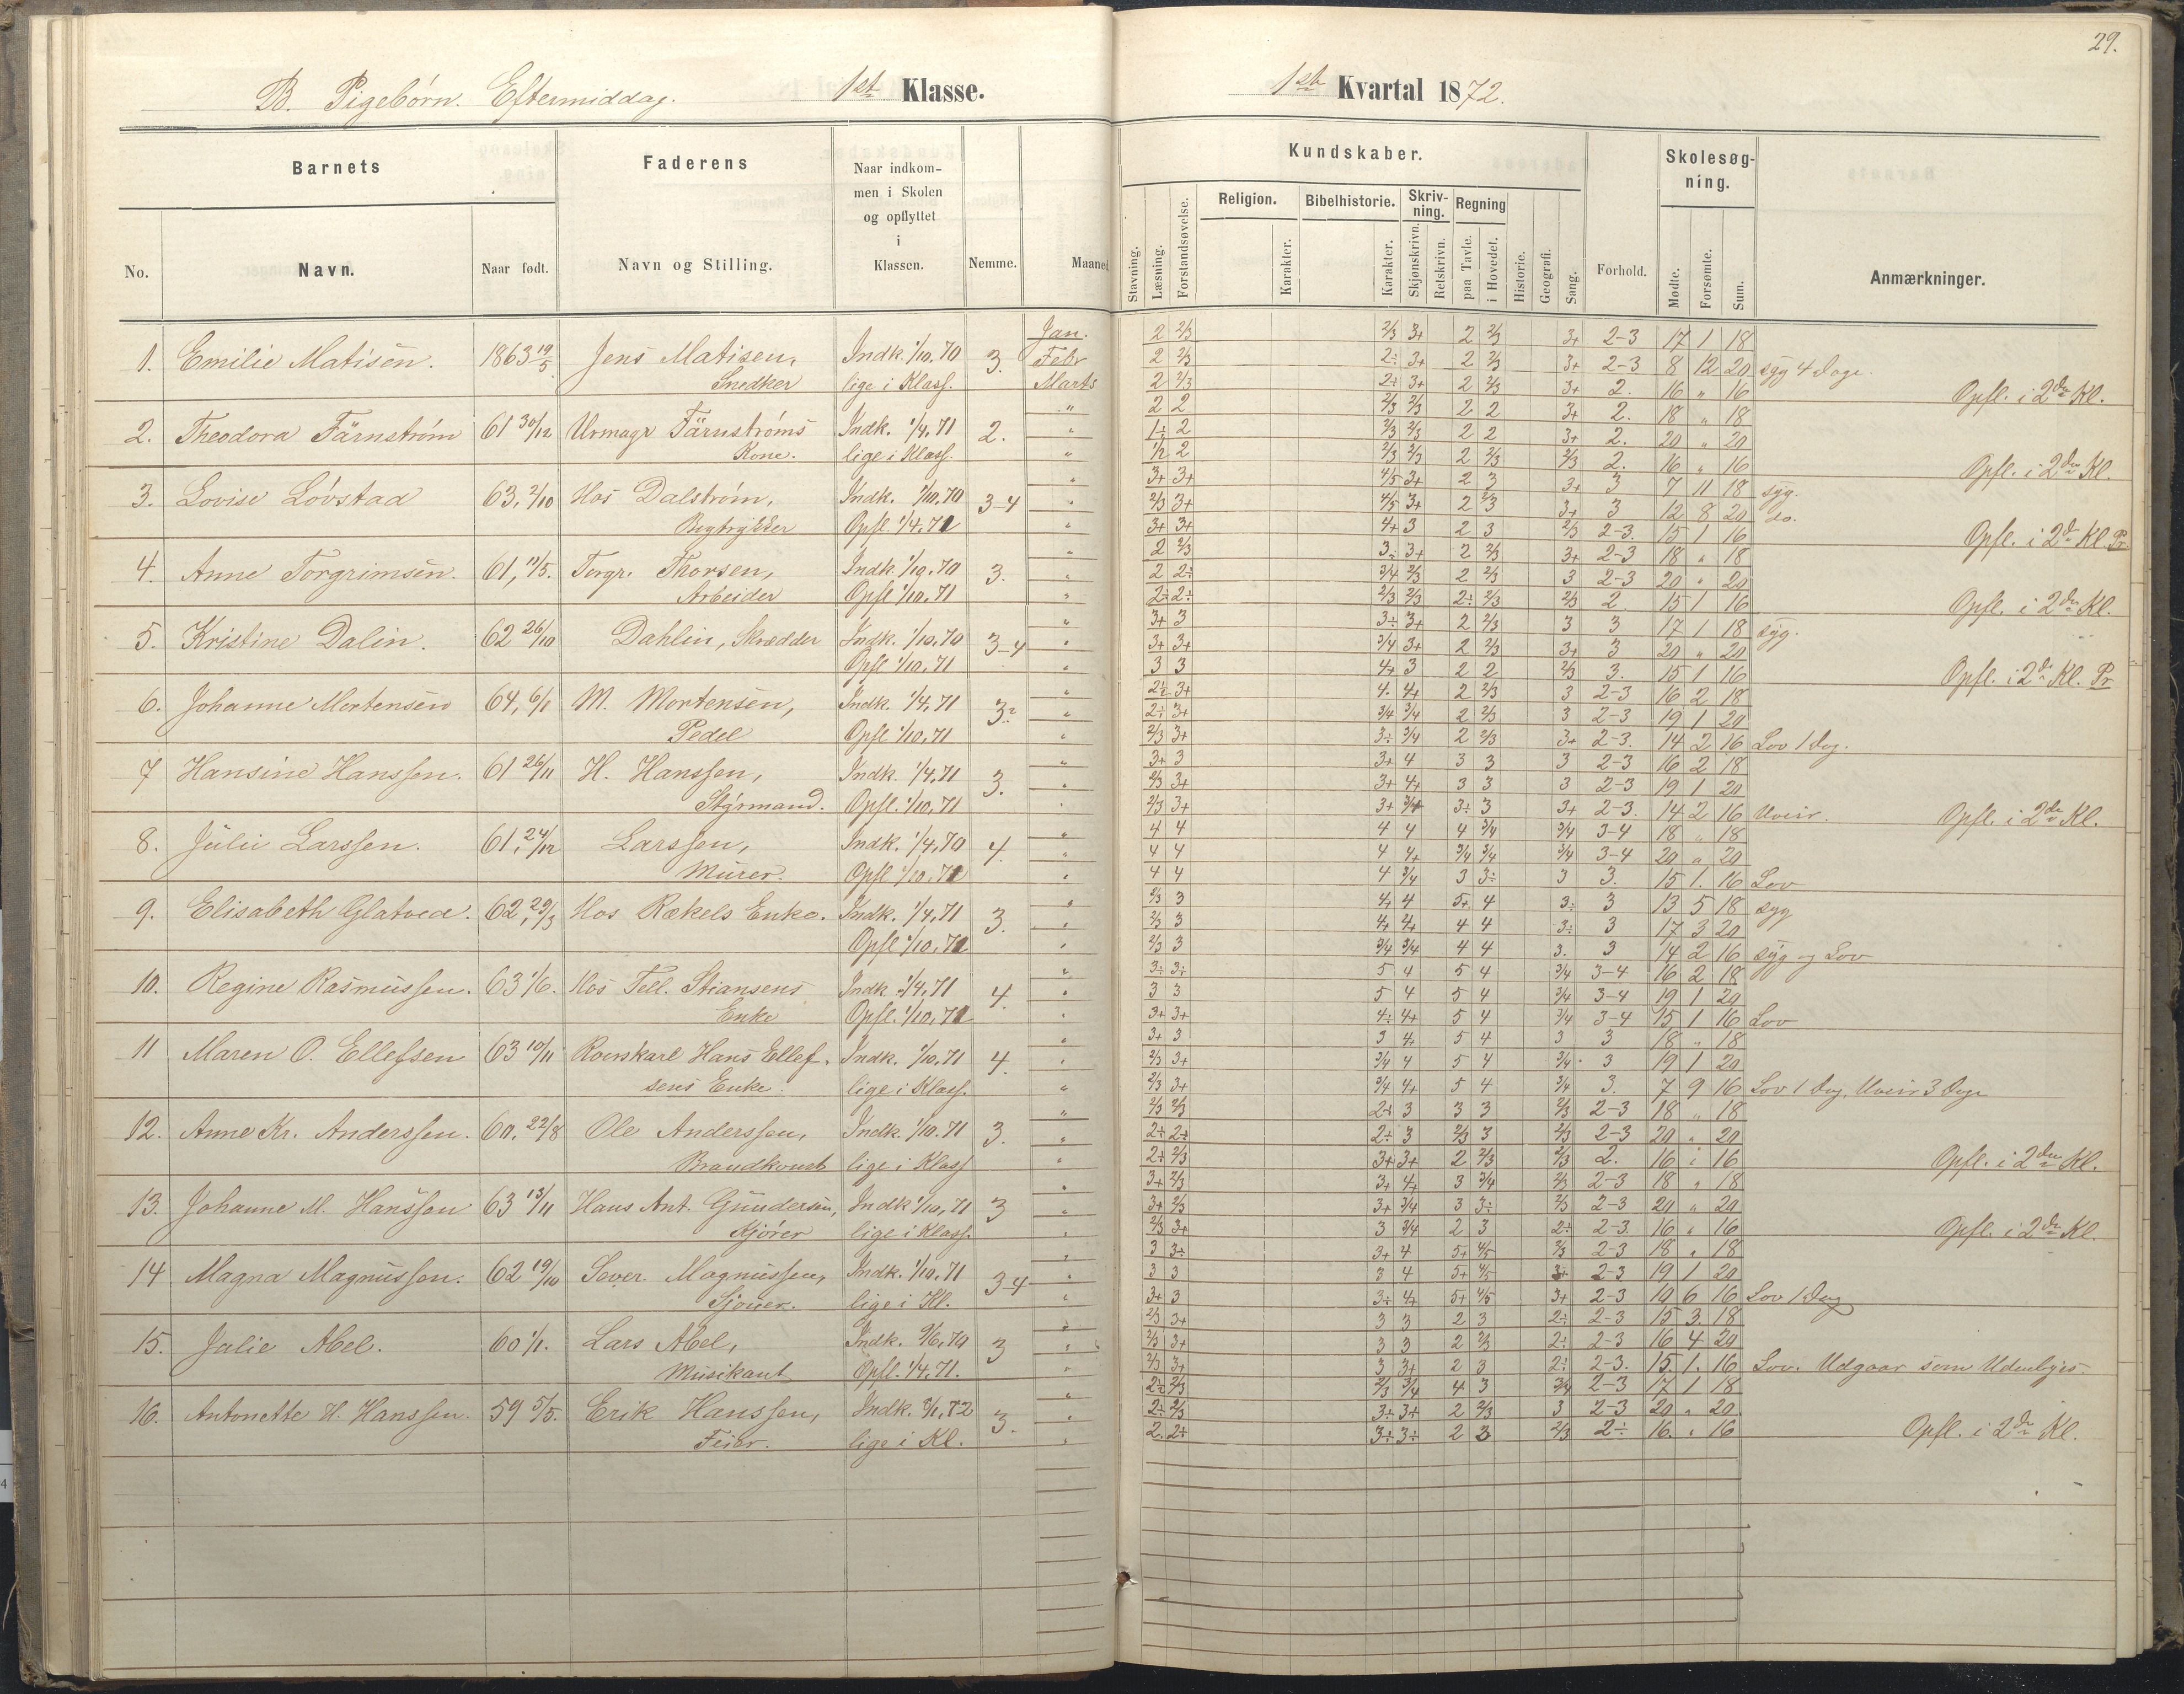 29.
B. Pigebørn. Eftermiddag. 1ste Klasse. 1ste Kvartal 1872.
Barnets Faderens Naar indkommen i Skolen og opflyttet i Klassen. Nemme. Maaned
No. Navn. Naar født. Navn og Stilling.
Kundskaber. Skolesøgning.
Stavning. Læsning. Forstandsøvelse. Religion. Karakter. Bibelhistorie. Karakter. Skrivning. Skjønskrivn. Retskrivn. Regning paa Tavle. i Hovedet. Historie. Geografi. Sang. Forhold. Mødte. Forsømte. Sum. Anmærkninger.
Jan. 2 2/3 2/3 3+ 2 2/3 3+ 2-3 17 1 18
1. Emilie Matisen. 1863 19/5 Jens Matisen, Indk. 1/10.70 3. Febr 2 2/3 2÷ 3+ 2 2/3 3+ 2-3 8 12 20 syg 4 Dage.
Snedker lige i Klass. Marts 2 2/3 2÷ 3+ 2 2/3 3+ 2. 16 " 16 Opfl. i 2den Kl.
" 2 2 2/3 2/3 2 2 3+ 2. 18 " 18
2. Theodora Färnstrøm 61 30/12 Urmagr Färnstrøms Indk. 1/4.71 2. " 1÷ 2 2/3 2/3 2 2 3+ 2. 20 " 20
Kone. lige i Klass. " 1/2 2 2/3 2/3 2 2/3 2/3 2. 16 " 16 Opfl. i 2den Kl.
" 3+ 3+ 4/5 3+ 2 3 3+ 3 7 11 18 syg.
3. Lovise Løvstad 63, 2/10 Hos Dalstrøm, Indk. 1/10.70 3-4 " 2/3 3+ 4/5 3+ 2 2/3 3+ 3 12 8 20 do.
Bogtrykker Opfl. 1/4.71 " 3+ 3+ 4+ 3 2 3 2/3 2-3. 15 1 16 Opfl. i 2den Kl. Pr
" 2 2/3 3÷ 3+ 2 2/3 3+ 2-3 18 " 18
4. Anne Torgrimsen. 61, 11/5. Torgr. Thorsen, Indk. 1/10.70 3. " 2 2÷ 3/4 2/3 2 2/3 3 2-3 20 " 20
Arbeider Opfl. 1/10.71 " 2÷ 2÷ 2/3 2/3 2÷ 2/3 2/3 2. 15 1 16 Opfl. i 2den Kl.
" 3+ 3 3÷ 3+ 2 2/3 3 3 17 1 18 syg.
5. Kristine Dalin. 62 26/10 Dahlin, Skrædder Indk. 1/10.70 3-4 " 3+ 3+ 3/4 3+ 2 2/3 3+ 3 20 " 20
Opfl 1/10.71 " 3 3 4+ 3 2 2 2/3 3. 15 1 16 Opfl. i 2den Kl. Pr
" 2÷ 3+ 4. 4+ 2 2/3 3 2-3 16 2 18
6. Johanne Mortensen 64, 6/1 M. Mortensen, Indk. 1/4.71 3. " 2÷ 3+ 3/4 3/4 2 2/3 3 2-3 19 1 20
Pedel Opfl 1/10.71 " 2/3 3+ 3÷ 3/4 2 2/3 3+ 2-3. 14 2 16 Lov 1 Dag.
" 3+ 3 3+ 4 3 3 3 2-3 16 2 18
7 Hansine Hanssen. 61 26/11 H. Hanssen, Indk. 1/4.71 3. " 2/3 3+ 3+ 4+ 3 3 3 2-3 19 1 20
Styrmand. Opfl. 1/10.71 " 2/3 3+ 3+ 3/4 3÷ 3 3+ 2-3. 14 2 16 Uveir. Opfl. i 2den Kl.
" 4 4 4 4 4 3/4 3/4 3-4 18 " 18
8. Julie Larssen. 61, 24/12 Larssen, Indk. 1/4.70 4. " 4 4 4 4+ 3/4 3/4 3/4 3-4 20 " 20
Murer. Opfl 1/10.71 " 4 4 4 3/4 3 3÷ 3 3. 15 1. 16 Lov
" 2/3 3 4+ 4 5+ 4 3÷ 3 13 5 18 syg
9. Elisabeth Glatved. 62, 29/3 Hos Rækels Enke. Indk. 1/4.71 3. " 2/3 3 4+ 4+ 4 4 3÷ 3 17 3 20
Opfl 1/10.71 " 2/3 3 3/4 3/4 4 4 3. 3 14 2 16 syg og Lov
" 3÷ 3÷ 5 4 5 4 3/4 3-4 16 2 18
10. Regine Rasmussen. 63 1/6. Hos Tell. Stiansens Indk. 1/4.71 4. " 3 3 5 4 5 4 3/4 3-4 19 1 20
Enke Opfl. 1/10.71 " 3+ 3+ 4÷ 4+ 5 4 3/4 3-4 15 1 16 Lov
" 3+ 3 3 4+ 5 4 3 3 18 " 18
11 Maren O. Ellefsen 63 10/11 Rorskarl Hans Ellef- Indk. 1/10.71 4. " 2/3 3+ 3/4 4 5 4 3/4 3 19 1 20
sens Enke. lige i Klass. " 2/3 3+ 3/4 4+ 5 4 3/4 3. 7 9 16 Lov 1 Dag, Uveir 3 Dage
" 2/3 2/3 2÷ 3 3 3 2/3 2-3 18 " 18
12. Anne Kr. Anderssen. 60, 22/8 Ole Anderssen, Indk. 1/10.71 3. " 2÷ 2÷ 2÷ 3 2/3 3 2/3 2-3 20 " 20
Brandkonst lige i Klass " 2÷ 2/3 3+ 3+ 2 2/3 2/3 2. 16 " 16 Opfl. i 2den Kl.
" 3+ 2/3 3+ 4+ 3 3/4 2/3 2-3 18 " 18
13. Johanne M. Hanssen 63 13/11 Hans Ant. Gundersen, Indk 1/10.71 3 " 3+ 2/3 3+ 3/4 3 3÷ 2/3 2-3 20 " 20
Kjører lige i Klass. " 2/3 3+ 3 3/4 2 3 2÷ 2-3. 16 " 16 Opfl. i 2den Kl.
" 3 3÷ 3+ 4 5+ 4/5 2/3 2-3 18 " 18
14 Magna Magnussen. 62 19/10 Sever. Magnussen, Indk. 1/10.71 3-4 " 3 3 3 4 5+ 4/5 3+ 2-3 19 1 20
Sjouer. lige i Kl. " 3+ 3 3÷ 4+ 5+ 4/5 3+ 2-3 10 6 16 Lov 1 Dag
" 2/3 3+ 3 3 2 3 2÷ 2-3 15 3. 18
15. Julie Abel. 60 1/1. Lars Abel, Indk. 9/6.70 3 " 2/3 3+ 3 3 2 2/3 2÷ 2-3 16 4 20
Musikant Opfl. 1/4.71. " 2/3 3+ 3 3+ 2 3 2÷ 2-3. 15 1. 16 Lov. Udgaar som Udenbyes-
" 2÷ 2/3 2/3 3/4 4 3 3/4 2-3 17 1 18
16. Antonette H. Hanssen. 59 5/5. Erik Hanssen, Indk. 8/1.72 3. " 2÷ 2/3 3÷ 3+ 2 2/3 3 2-3 20 " 20
Feier. lige i Kl. " 2. 2÷ 3÷ 3÷ 2 3 2/3 2÷ 16. " 16 Opfl. i 2den Kl.